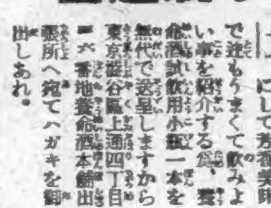 にして芳香美味
で迚もうまくて飲みよ
い事を紹介する爲、養
命酒試飲用小瓶一本を
無代で送呈しますから
東京澁谷區上通四丁目
二六番地養命酒本舗出
張所へ宛てハガキを御
出しあれ。